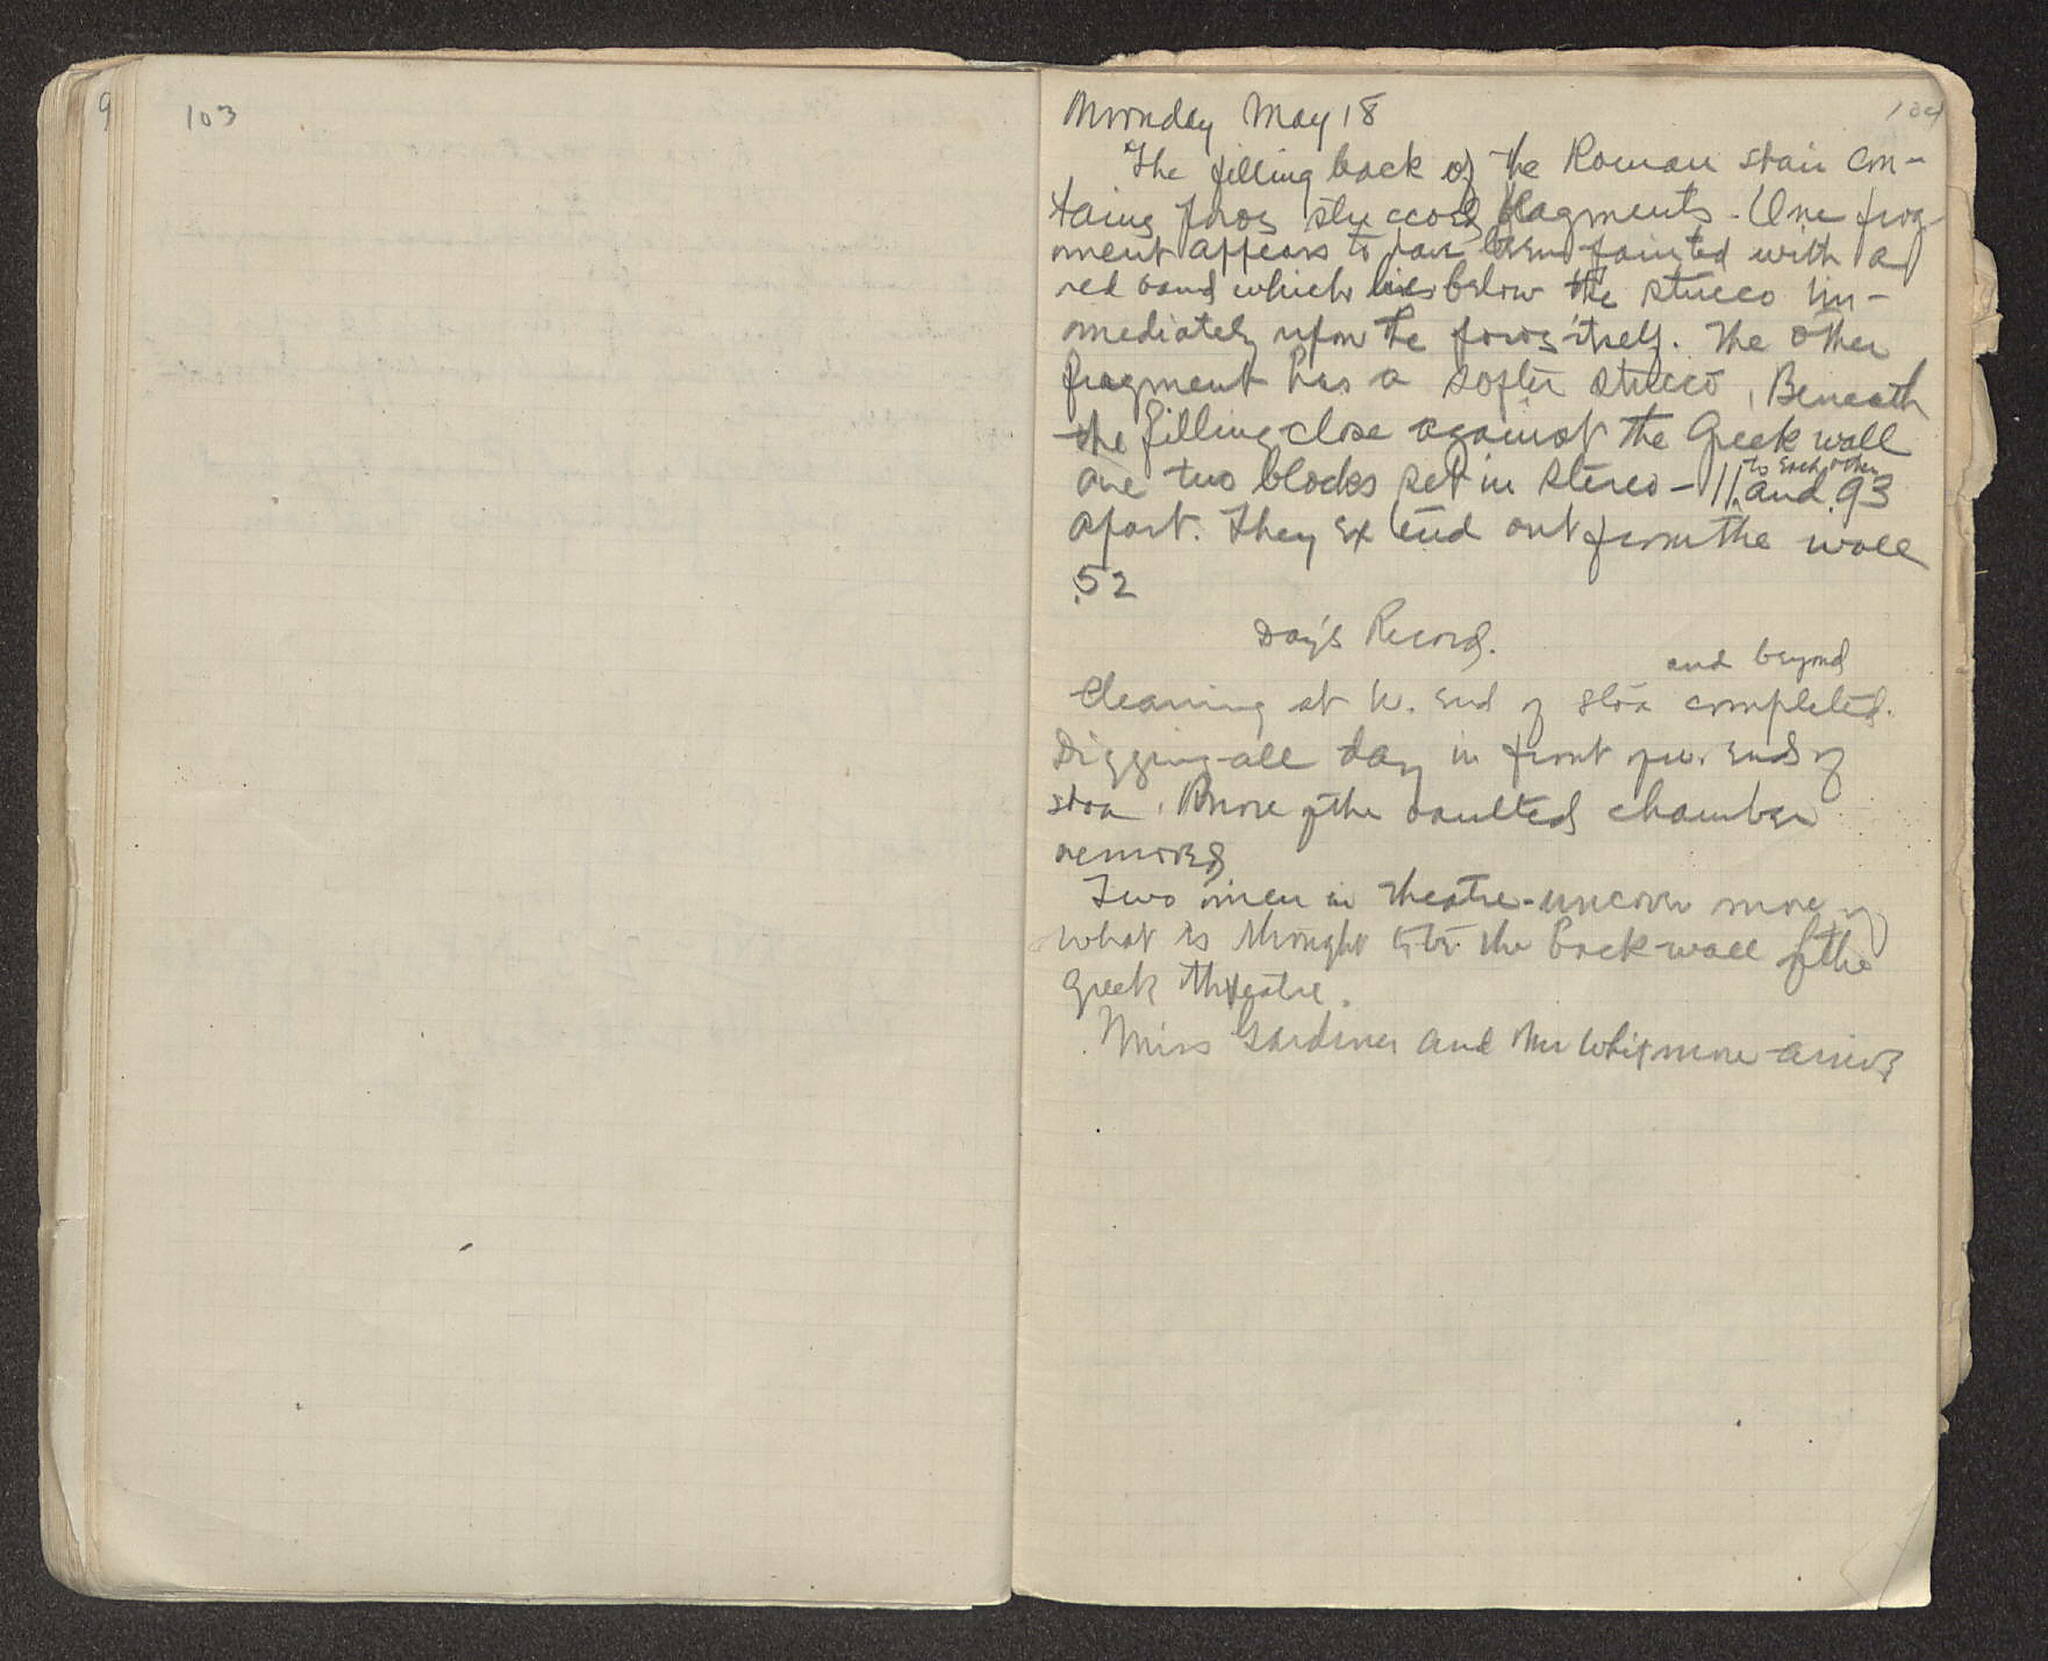 9
103
104
Monday May 18
The filling back of the Roman stair con-
tains poros stuccoed fragments. One frag-
ment appears to have been painted with a
red band which lies below the stucco im-
mediately upon the poros itself. The other
fragment has a softer stucco. Beneath
the filling close against the Greek wall
are two blocks set in stereo - || to each other and .93
apart. They extend out from the wall
.52
Day's Record.
Cleaning at W. end of stoa and beyond completed.
Digging all day in front of w. end of
stoa. More of the vaulted chamber
removed
Two men in theatre - uncover more of
what is thought to be the back wall of the
Greek theatre.
Miss Gardiner and Mr Whitmore arrive